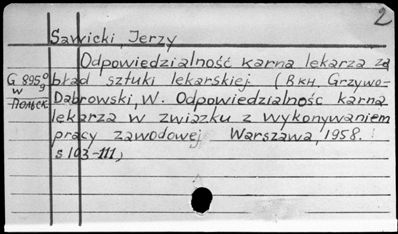 2
Sawicki, Jerzy
Odpowiedzialność karna lekarza za
G 895/9
w
Польск.
błąd sztuki lekarskiej (Вкн. Grzywo-
Dąbrowski, W. Odpowiedzialność karna
lekarza w związku z wykonywaniem
pracy zawodowej Warszawa, 1958.
s 103-111)